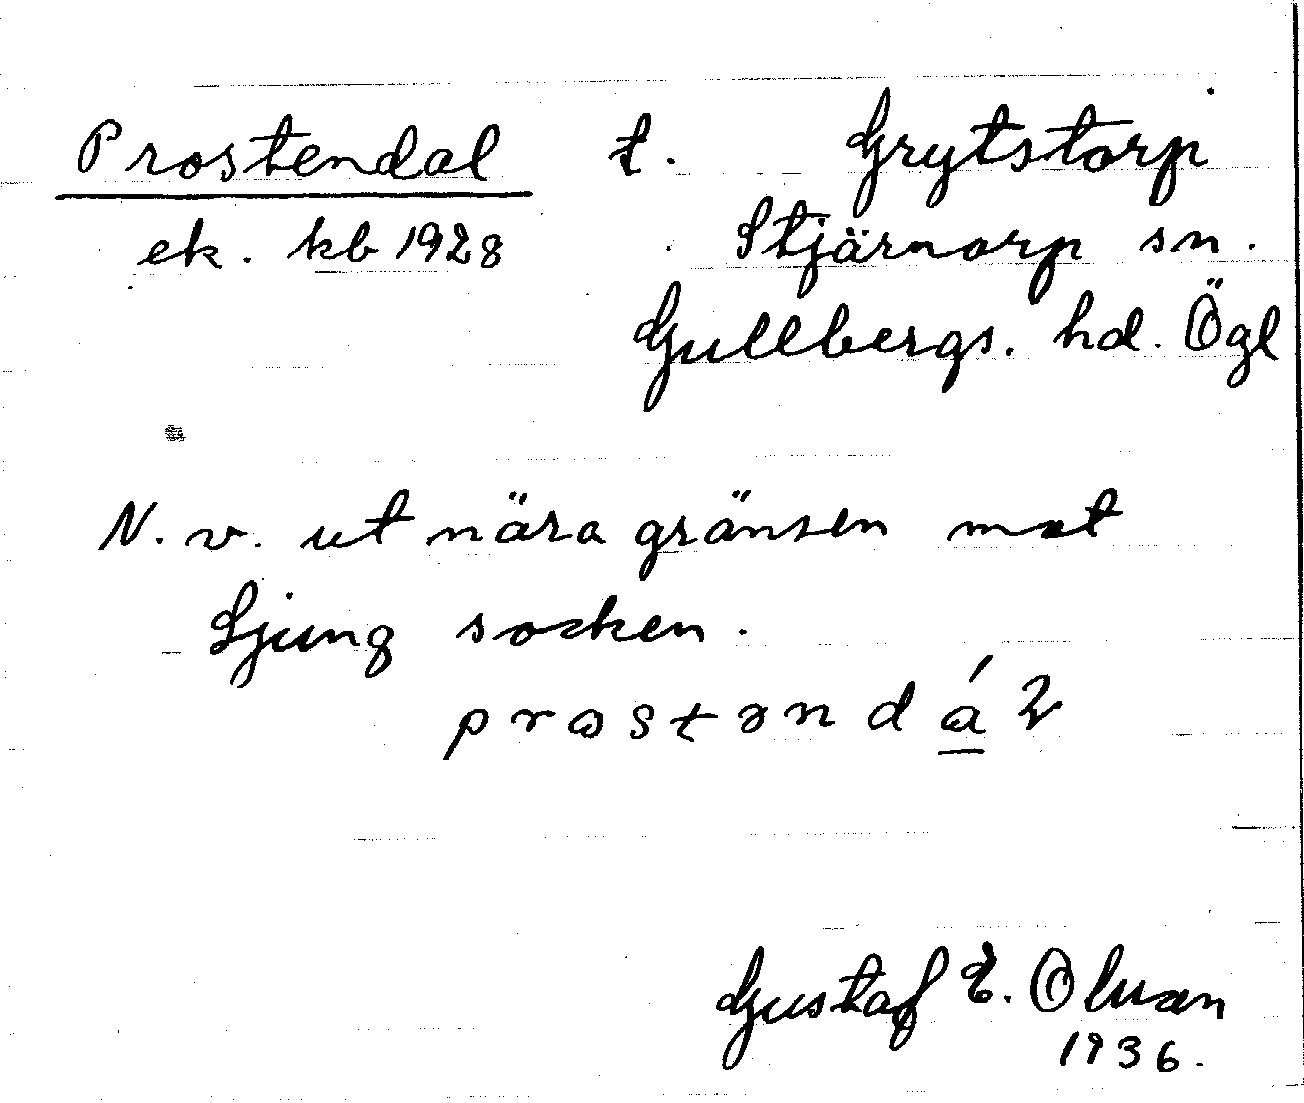 Prostendal t. Grytstorp
ek. kb 1928 Stjärnorp sn.
Gullbergs. hd. Ögl
N. v. ut nära gränsen mot
Ljung socken.
prɷstənd á̲ ɭ
Gustaf E. Olsson
1936.